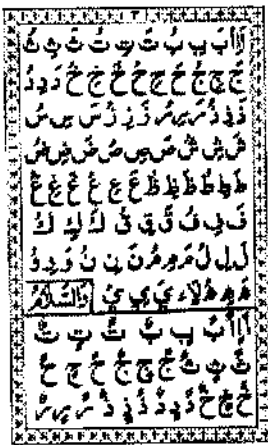 اَ اِ اُ بَ بِ بُ تَ تِ تُ ثَ ثِ ثُ
جَ جِ جُ حَ حِ حُ خَ خِ خُ دَ دِ دُ
ذَ ذِ ذُ رَ رِ رُ زَ زِ زُ سَ سِ سُ
شَ شِ شُ صَ صِ صُ ضَ ضِ ضُ
طَ طِ طُ ظَ ظِ ظُ عَ عِ عُ غَ غِ غُ
فَ فِ فُ قَ قِ قُ كَ كِ كُ
لَ لِ لُ مَ مِ مُ نَ نِ نُ وَ وِ وُ
هَ هِ هُ لَا ءَ يَ يِ يُ وَالسَّلَامُ
اً اٍ اٌ بً بٍ بٌ تً تٍ تٌ
ثً ثٍ ثٌ جً جٍ جٌ حً حٍ حٌ
خً خٍ خٌ دً دٍ دٌ ذً ذٍ ذٌ رً رٍ رٌ